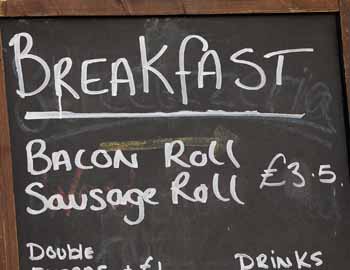 BREAKFAST
BACON Roll
Sausage Roll £3.5.
DOUBLE
DRINKS